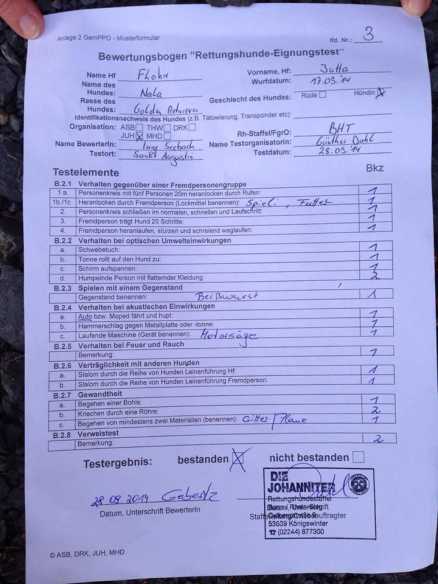 Anlage 2 GemPPO - Musterformular
lfd. Nr.: 3
Bewertungsbogen "Rettungshunde-Eignungstest"
Name Hf
Vorname, Hf: Jutta
Name des Hundes: Nala
Wurfdatum: 17.03.14
Rasse des Hundes: Golden Retriever
Geschlecht des Hundes: Rüde Hündin
Identifikationsnachweis des Hundes (z.B. Tätowierung, Transponder etc.)
Organisation: ASB THW DRK
JUH MHD
Rh-Staffel/FgrO: BHT
Name BewerterIn:
Name Testorganisatorin: Günther Dahl
Testort: Sankt Augustin
Testdatum: 28.09.14
Testelemente
Bkz
B.2.1 Verhalten gegenüber einer Fremdpersonengruppe
1.a. Personenkreis mit fünf Personen 20m heranlocken durch Rufen: 1
1b./1c. Heranlocken durch Fremdperson (Lockmittel benennen): Spiel, Futter 1
2. Personenkreis schließen im normalen, schnellen und Laufschritt: 1
3. Fremdperson trägt Hund 20 Schritte: 1
4. Fremdperson heranlaufen, stürzen und schreiend weglaufen: 1
B.2.2 Verhalten bei optischen Umwelteinwirkungen
a. Schwebetuch: 1
b. Tonne rollt auf den Hund zu: 1
c. Schirm aufspannen: 1
d. Humpelnde Person mit flatternder Kleidung: 2
B.2.3 Spielen mit einem Gegenstand
Gegenstand benennen: Beißwurst 1
B.2.4 Verhalten bei akustischen Einwirkungen
a. Auto bzw. Moped fährt und hupt: 1
b. Hammerschlag gegen Metallplatte oder -tonne: 1
c. Laufende Maschine (Gerät benennen): Motorsäge 1
B.2.5 Verhalten bei Feuer und Rauch
Bemerkung: 1
B.2.6 Verträglichkeit mit anderen Hunden
a. Slalom durch die Reihe von Hunden Leinenführung Hf: 1
b. Slalom durch die Reihe von Hunden Leinenführung Fremdperson: 1
B.2.7 Gewandtheit
a. Begehen einer Bohle: 1
b. Kriechen durch eine Röhre: 2
c. Begehen von mindestens zwei Materialien (benennen): Gitter / Plane 1
B.2.8 Verweistest
Bemerkung: 2
Testergebnis: bestanden nicht bestanden
28.09.2014
Datum, Unterschrift BewerterIn
DIE
JOHANNITER
Rettungshundestaffel
53639 Königswinter
☎ (02244) 877300
© ASB, DRK, JUH, MHD